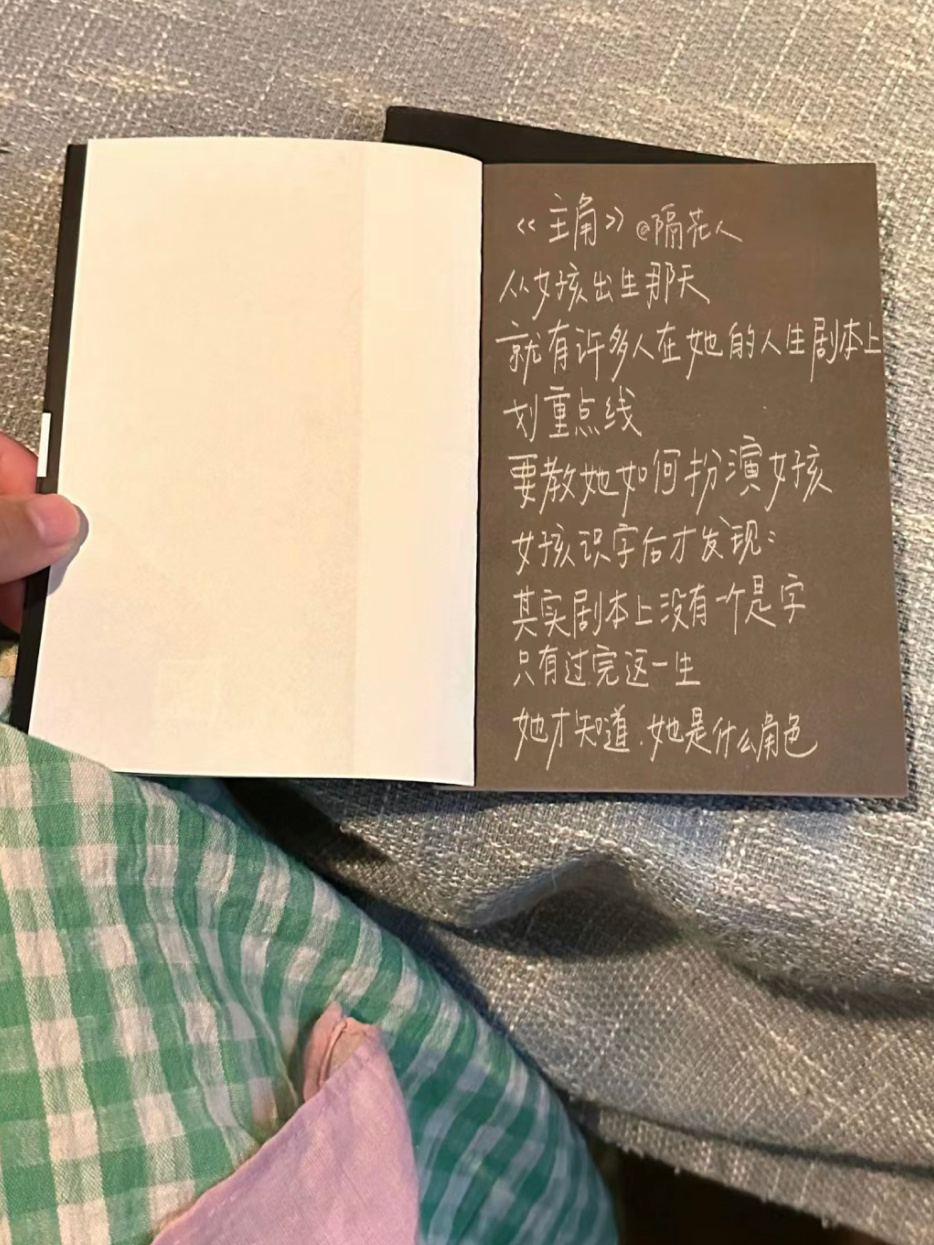 《主角》@隔花人
从女孩出生那天
就有许多人在她的人生剧本上
划重点线
要教她如何扮演女孩
女孩识字后才发现：
其实剧本上没有一个是字
只有过完这一生
她才知道.她是什么角色